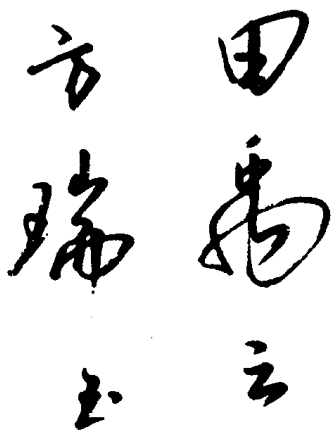 田禹云
方瑞玉